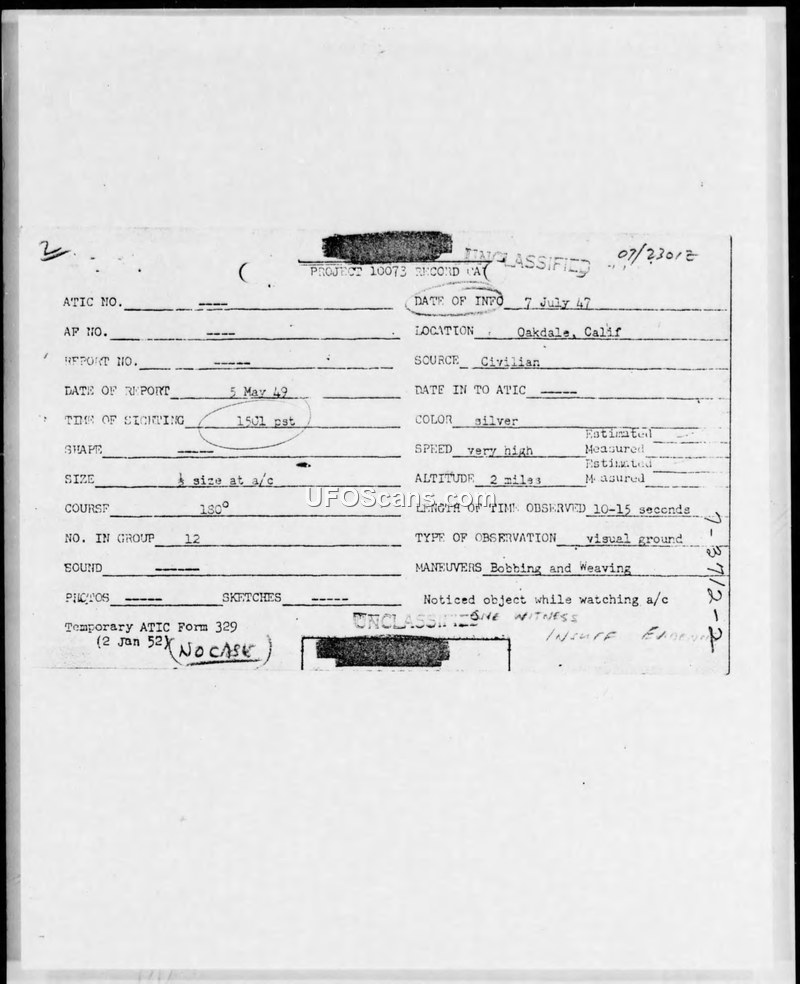 2
UNCLASSIFIED
07/2301Z
PROJECT 10073 RECORD CA
ATIC NO. ----
DATE OF INFO 7 July 47
AF NO. ----
LOCATION Oakdale, Calif
REPORT NO. -----
SOURCE Civilian
DATE OF REPORT 5 May 49
DATE IN TO ATIC -----
TIME OF SIGHTING 1501 pst
COLOR silver
SHAPE -----
SPEED very high
Estimated
Measured
SIZE ½ size at a/c
ALTITUDE 2 miles
Estimated
Measured
UFOScans.com
COURSE 180°
LENGTH OF TIME OBSERVED 10-15 seconds
NO. IN GROUP 12
TYPE OF OBSERVATION visual ground
SOUND ------
MANEUVERS Bobbing and Weaving
PHOTOS -----
SKETCHES -----
Noticed object while watching a/c
UNCLASSIFIED
ONE WITNESS
INSUFF
Temporary ATIC Form 329
(2 Jan 52)
(NO CASE)
7-3712-2